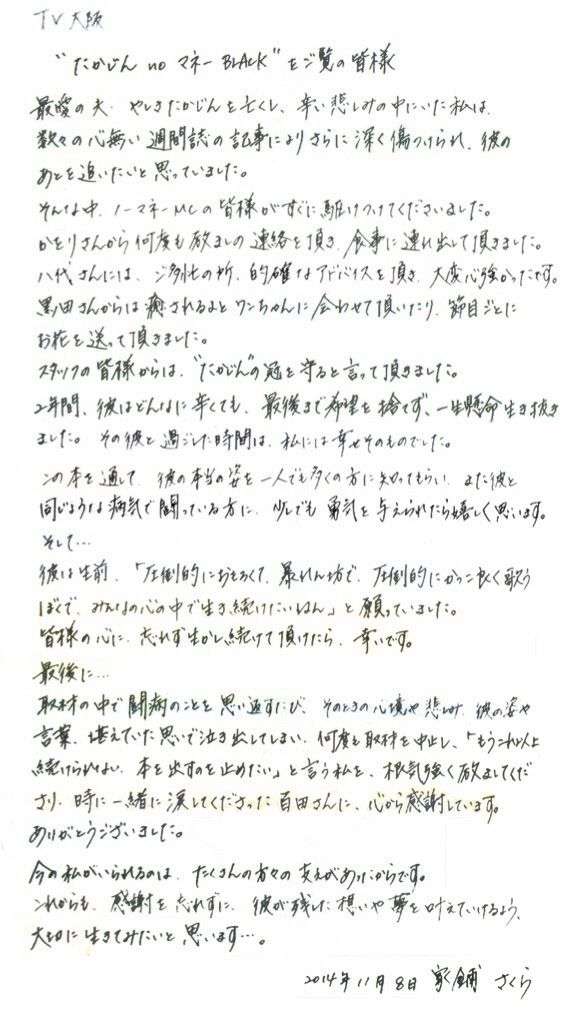 TV大阪
"たかじん no マネー BLACK" をご覧の皆様
最愛の夫、やしきたかじんを亡くし、辛い悲しみの中にいた私は、
数々の心無い週間誌の記事によりさらに深く傷つけられ、彼の
あとを追いたいと思っていました。
そんな中、ノーマネーMCの皆様がすぐに駆けつけてくださいました。
かとりさんから何度も励ましの連絡を頂き、食事に連れ出して頂きました。
八代さんには、ご多忙の所、的確なアドバイスを頂き、大変心強かったです。
黒田さんからは癒されるよとワンちゃんに会わせて頂いたり、節目ごとに
お花を送って頂きました。
スタッフの皆様からは、"たかじん"の冠を守ると言って頂きました。
2年間、彼はどんなに辛くても、最後まで希望を捨てず、一生懸命生き抜き
ました。その彼と過ごした時間は、私には幸せそのものでした。
この本を通して、彼の本当の姿を一人でも多くの方に知ってもらい、また彼と
同じような病気で闘っている方に、少しでも勇気を与えられたら嬉しく思います。
そして…
彼は生前、「圧倒的におもろくて、暴れん坊で、圧倒的にかっこ良く歌う
ぼくで、みんなの心の中で生き続けたいねん」と願っていました。
皆様の心に、忘れず生かし続けて頂けたら、幸いです。
最後に…
取材の中で闘病のことを思い返すたび、そのときの心境や悲しみ、彼の姿や
言葉、堪えていた思いで泣き出してしまい、何度も取材を中止し、「もうこれ以上
続けられない、本を出すのを止めたい」と言う私を、根気強く励ましてくだ
さり、時に一緒に涙してくださった百田さんに、心から感謝しています。
ありがとうございました。
今の私がいられるのは、たくさんの方々の支えがあったからです。
これからも、感謝を忘れずに、彼が残した想いや夢を叶えていけるよう、
大切に生きてみたいと思います…。
2014年11月8日 家鋪 さくら